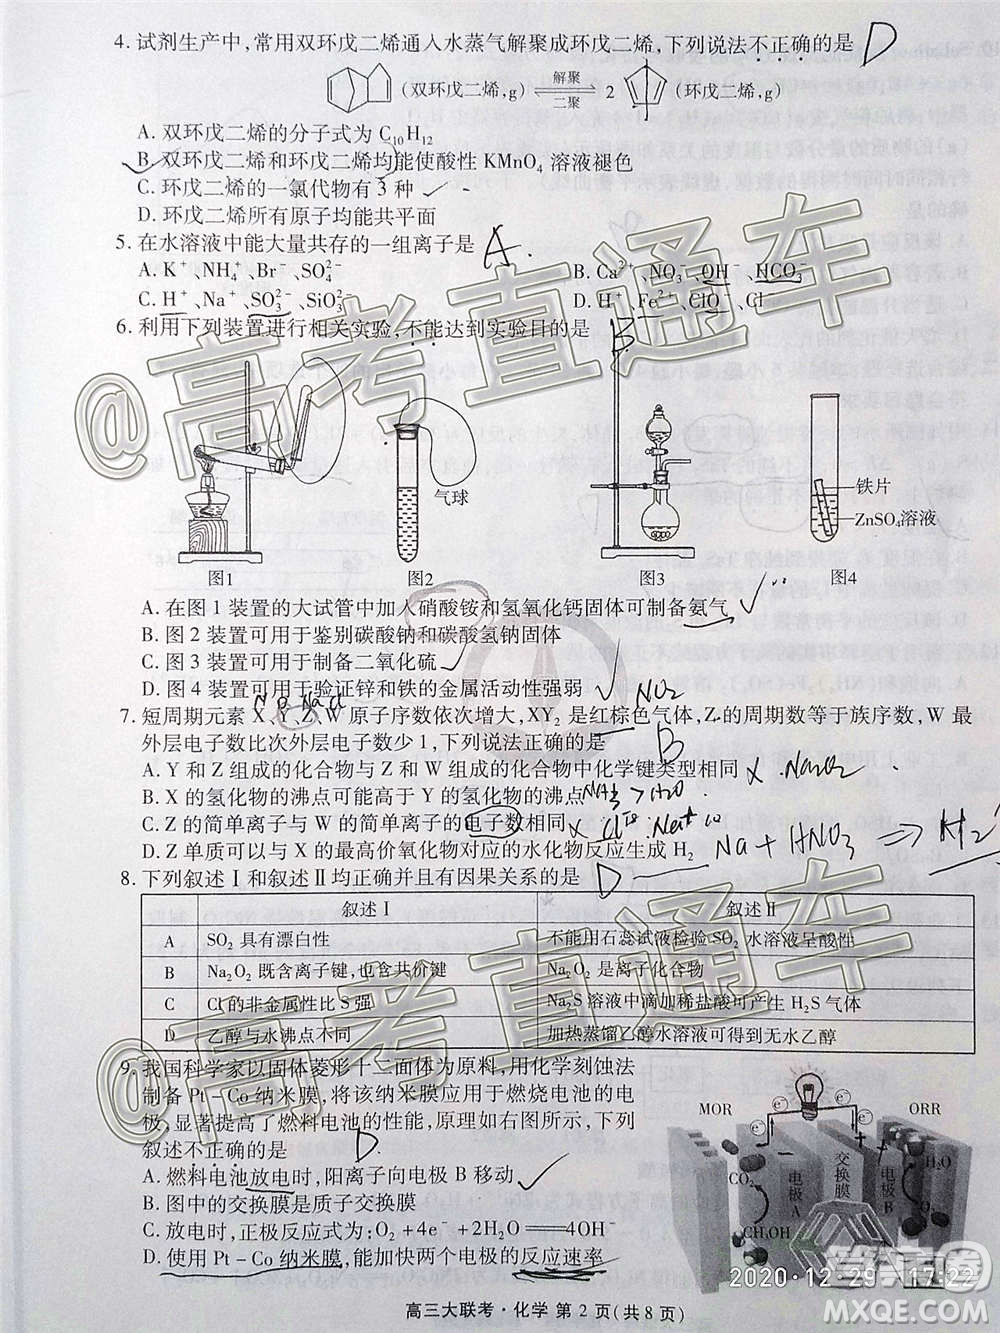 4. 试剂生产中,常用双环戊二烯通入水蒸气解聚成环戊二烯,下列说法不正确的是 D
(双环戊二烯,g) 解聚 二聚 2 (环戊二烯,g)
A. 双环戊二烯的分子式为 C10H12
B. 双环戊二烯和环戊二烯均能使酸性 KMnO4 溶液褪色
C. 环戊二烯的一氯代物有 3 种
D. 环戊二烯所有原子均能共平面
5. 在水溶液中能大量共存的一组离子是 A
A. K⁺、NH4⁺、Br⁻、SO4²⁻ B. Ca²⁺、NO3⁻、OH⁻、HCO3⁻
C. H⁺、Na⁺、SO3²⁻、SiO3²⁻ D. H⁺、Fe²⁺、ClO⁻、Cl⁻
6. 利用下列装置进行相关实验,不能达到实验目的是 B
气球
铁片
ZnSO4溶液
图1 图2 图3 图4
A. 在图 1 装置的大试管中加入硝酸铵和氢氧化钙固体可制备氨气
B. 图 2 装置可用于鉴别碳酸钠和碳酸氢钠固体
C. 图 3 装置可用于制备二氧化硫
D. 图 4 装置可用于验证锌和铁的金属活动性强弱
NO2
7. 短周期元素 X、Y、Z、W 原子序数依次增大,XY2 是红棕色气体,Z 的周期数等于族序数,W 最
外层电子数比次外层电子数少 1,下列说法正确的是 B
A. Y 和 Z 组成的化合物与 Z 和 W 组成的化合物中化学键类型相同 × Na2O2
B. X 的氢化物的沸点可能高于 Y 的氢化物的沸点 NH3 > H2O
C. Z 的简单离子与 W 的简单离子的电子数相同 × Cl⁻ 18 Na⁺ 10
D. Z 单质可以与 X 的最高价氧化物对应的水化物反应生成 H2 Na + HNO3 ⇒ H2↑
8. 下列叙述Ⅰ和叙述Ⅱ均正确并且有因果关系的是 D
叙述Ⅰ 叙述Ⅱ
A SO2 具有漂白性 不能用石蕊试液检验 SO2 水溶液呈酸性
B Na2O2 既含离子键,也含共价键 Na2O2 是离子化合物
C Cl的非金属性比 S 强 Na2S溶液中滴加稀盐酸可产生 H2S 气体
D 乙醇与水沸点不同 加热蒸馏乙醇水溶液可得到无水乙醇
9. 我国科学家以固体菱形十二面体为原料,用化学刻蚀法
制备 Pt-Co纳米膜,将该纳米膜应用于燃烧电池的电
极,显著提高了燃料电池的性能(如右图所示),下列
叙述不正确的是 D
A. 燃料电池放电时,阳离子向电极 B 移动
B. 图中的交换膜是质子交换膜
C. 放电时,正极反应式为:O2+4e⁻+2H2O══4OH⁻
D. 使用 Pt-Co纳米膜,能加快两个电极的反应速率
MOR e⁻ e⁻ ORR
CO2
CH3OH
电极A
交换膜
电极B
H2O
O2
2020·12·29 17:22
高三大联考·化学 第 2 页(共 8 页)
@高考直通车
@高考直通车
答案圈
MXQE.COM